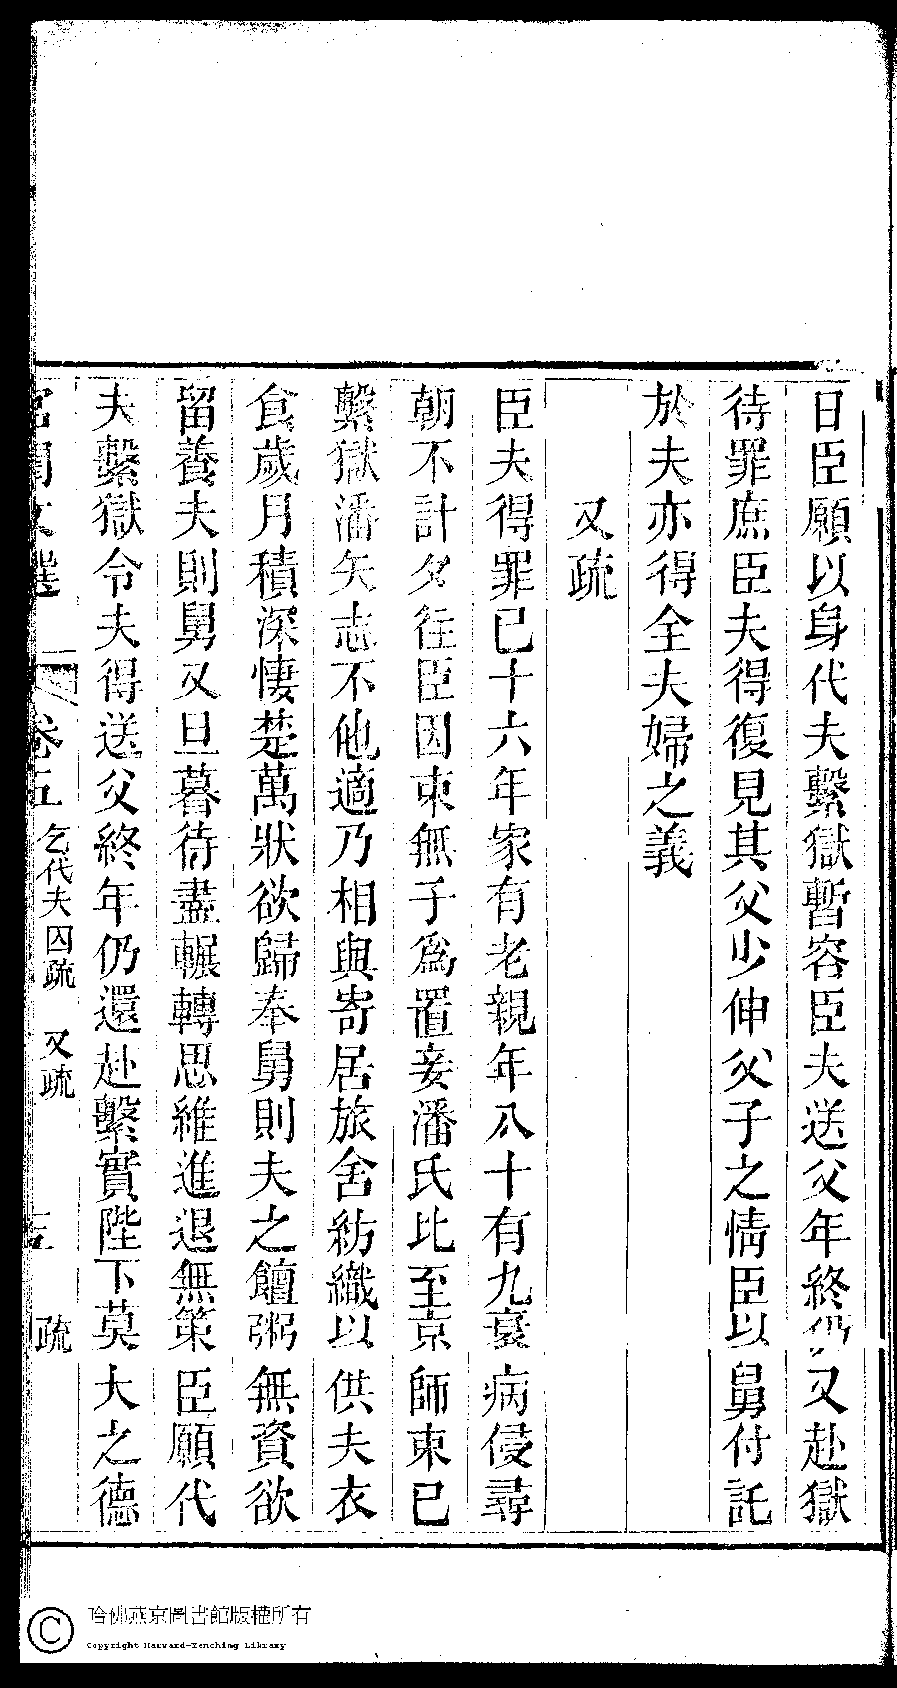 日臣願以身代夫繫獄暫容臣夫送父年終仍又赴獄
待罪庶臣夫得復見其父少伸父子之情臣以舅付託
於夫亦得全夫婦之義
又疏
臣夫得罪已十六年家有老親年八十有九衰病侵尋
朝不計夕往臣因束無子爲置妾潘氏比至京師束已
繫獄潘矢志不他適乃相與寄居旅舍紡織以供夫衣
食歲月積深悽楚萬狀欲歸奉舅則夫之饘粥無資欲
留養夫則舅又旦暮待盡輾轉思維進退無策臣願代
夫繫獄令夫得送父終年仍還赴繫實陛下莫大之德
宮閨文選 卷五 乞代夫囚疏 又疏 疏
哈佛燕京圖書館版權所有
Copyright Harvard-Yenching Library